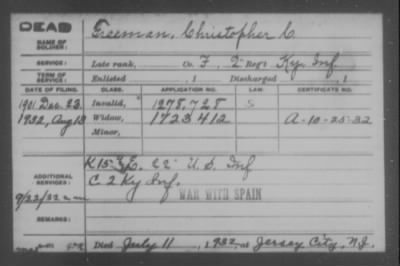 DEAD
NAME OF SOLDIER: Freeman, Christopher C.
SERVICE: Late rank, Co. F, 2" Reg't Ky. Inf
TERM OF SERVICE: Enlisted , 1 Discharged , 1
DATE OF FILING. CLASS. APPLICATION NO. LAW. CERTIFICATE NO.
1901 Dec. 23. Invalid, 1278,728 S
1932, Aug 13 Widow, 1723412 A-10-25-32
Minor,
K 15 E. 22" U.S. Inf
ADDITIONAL SERVICES: C 2 Ky Inf.
9/22/32 WAR WITH SPAIN
REMARKS:
Died July 11, 1932, at Jersey City, N.J.